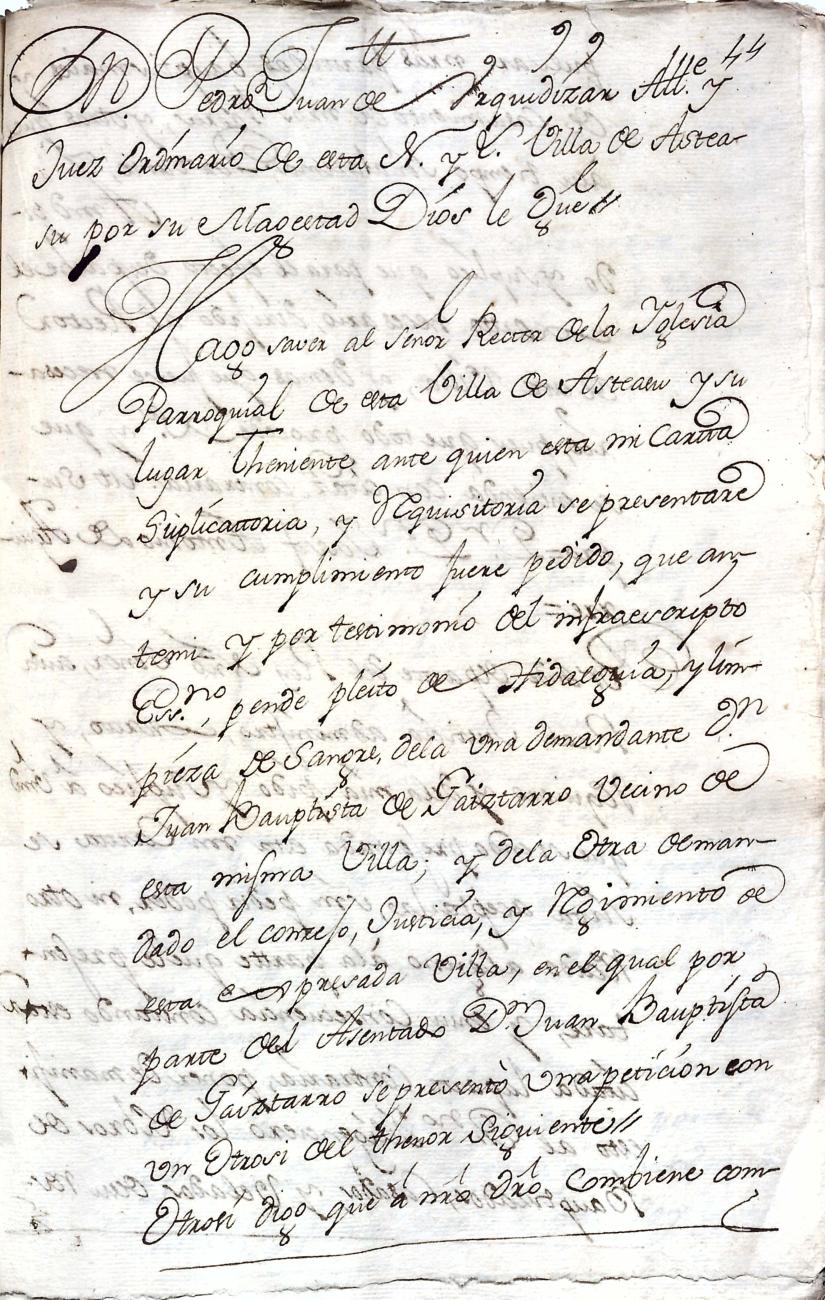 44
Dn. Pedro Juan de Urquidizar Alle. y
Juez Ordinario de esta N. y L. Villa de Astea-
su por su Magestad Dios le gue//
Hago saver al señor Rector de la Yglesia
Parroquial de esta Villa de Asteasu y su
lugar Theniente, ante quien esta mi Cartta
Suplicattoria, y Rquisitoria se presentare
y su cumplimiento fuere pedido, que an-
temi y por testimonio del infraescripto
Essno, pende pleito de Hidalguia, y lim-
pieza de Sangre, dela una demandante Dn.
Juan Bauptista de Gaiztarro Vecino de
esta misma Villa; y dela Otra deman-
dado el consejo, Justicia, y Rgimiento de
esta expresada Villa, en el qual por
parte del Asentado Dn Juan Bauptista
de Gaiztarro se presentò una peticion con
un Otrosi del thenor Siguiente//
Otrosi digo que à nrō drō Combiene com-